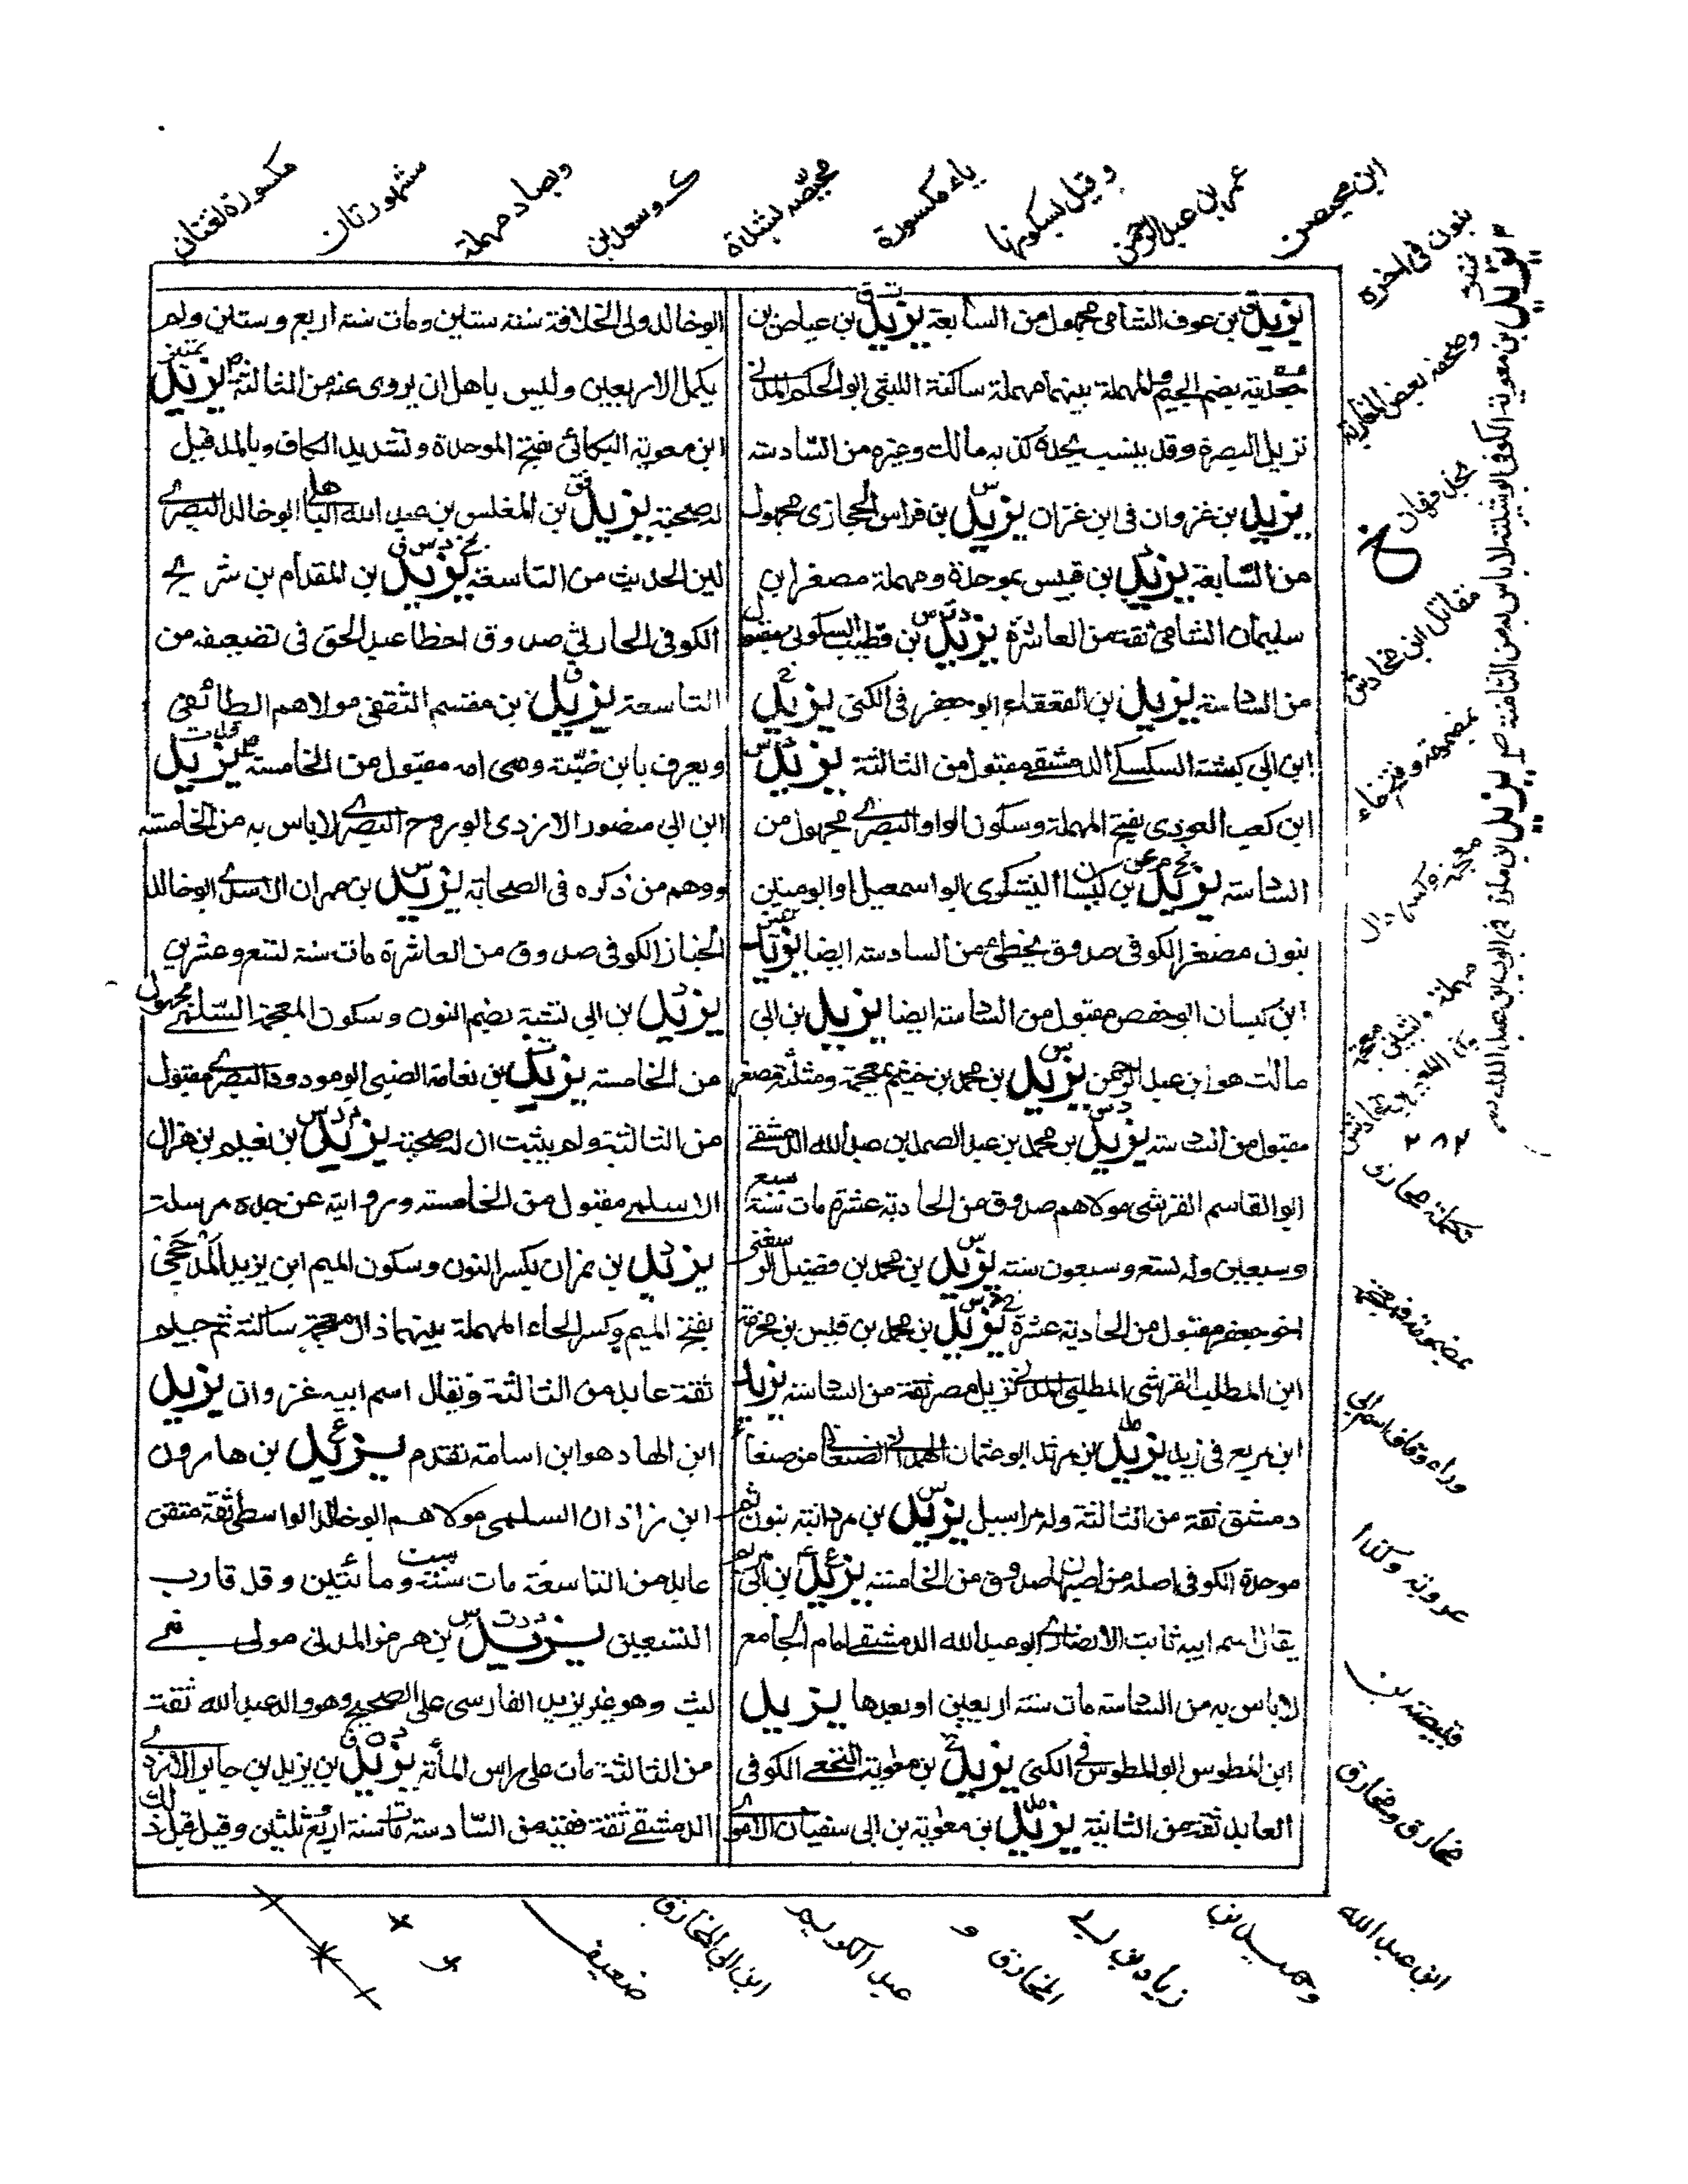 يزيد بن عوف الشامى مجهول من السابعة يزيد بن عياض بن
جعدبة بضم الجيم والمهملة بينهما مهملة ساكنة الليثى ابو الحكم المدنى
نزيل البصرة وقد ينسب لجده كذبه مالك وغيره من السادسة
يزيد بن غزوان فى ابن نمران يزيد بن فراس الحجازى مجهول
من السابعة يزيد بن قبيس بموحدة ومهملة مصغر ابن
سليمان الشامى ثقة من العاشرة يزيد بن قطيب السكونى مقبول
من السادسة يزيد بن القعقاع ابو جعفر فى الكنى يزيد
ابن ابى كبشة السكسكى الدمشقى مقبول من الثالثة يزيد
ابن كعب العوذى بفتح المهملة وسكون الواو البصرى مجهول من
السادسة يزيد بن كيسان اليشكرى ابو اسمعيل او ابو منين
بنون مصغر الكوفى صدوق يخطئ من السادسة ايضا يزيد
ابن كيسان ابو حفص مقبول من السادسة ايضا يزيد بن ابى
مالك هو ابن عبد الرحمن يزيد بن محمد بن خثيم بمعجمة ومثلثة مصغر
مقبول من السادسة يزيد بن محمد بن عبد الصمد بن عبد الله الدمشقى
ابو القاسم القرشى مولاهم صدوق من الحادية عشرة مات سنة سبع
وسبعين وله تسع وسبعون سنة يزيد بن محمد بن فضيل الرسعنى
اخو جعفر مقبول من الحادية عشرة يزيد بن محمد بن قيس بن مخرمة
ابن المطلب القرشى المطلبى المدنى نزيل مصر ثقة من السادسة يزيد
ابن مربع فى زيد يزيد بن مرثد ابو عثمان الهمدانى الصنعانى من صنعاء
دمشق ثقة من الثالثة وله مراسيل يزيد بن مردانبه بنون ثم
موحدة الكوفى اصله من اصبهان صدوق من الخامسة يزيد بن ابى مريم
يقال اسم ابيه ثابت الانصارى ابو عبد الله الدمشقى امام الجامع
لا باس به من السادسة مات سنة اربعين او بعدها يزيد
ابن المطوس ابو المطوس فى الكنى يزيد بن معوية النخعى الكوفى
العابد ثقة من الثانية يزيد بن معوية بن ابى سفيان الاموى
ابو خالد ولى الخلافة سنة ستين ومات سنة اربع وستين ولم
يكمل الاربعين وليس باهل ان يروى عنه من الثالثة تمييز يزيد
ابن معوية البكائى بفتح الموحدة وتشديد الكاف وبالمد قيل
له صحبة يزيد بن المغلس بن عبد الله الباهلى ابو خالد البصرى
لين الحديث من التاسعة يزيد بن المقدام بن شريح
الكوفى الحارثى صدوق اخطا عبد الحق فى تضعيفه من
التاسعة يزيد بن مقسم الثقفى مولاهم الطائفى
ويعرف بابن ضبة وهى امه مقبول من الخامسة يزيد
ابن ابى منصور الازدى ابو روح البصرى لا باس به من الخامسة
ووهم من ذكره فى الصحابة يزيد بن مهران الاسدى ابو خالد
الخباز الكوفى صدوق من العاشرة مات سنة تسع وعشرين
يزيد بن ابى نشبة بضم النون وسكون المعجمة السلمى مجهول
من الخامسة يزيد بن نعامة الضبى ابو مودود البصرى مقبول
من الثالثة ولم يثبت ان له صحبة يزيد بن نعيم بن هزال
الاسلمى مقبول من الخامسة وروايته عن جده مرسلة
يزيد بن نمران بكسر النون وسكون الميم ابن يزيد المذحجى
بفتح الميم وكسر الحاء المهملة بينهما ذال معجمة ساكنة ثم جيم
ثقة عابد من الثالثة ويقال اسم ابيه غزوان يزيد
ابن الهاد هو ابن اسامة تقدم يزيد بن هارون
ابن زاذان السلمى مولاهم ابو خالد الواسطى ثقة متقن
عابد من التاسعة مات سنة ست ومائتين وقد قارب
التسعين يزيد بن هرمز المدنى مولى بنى
ليث وهو غير يزيد الفارسى على الصحيح وهو والد عبد الله ثقة
من الثالثة مات على راس المائة يزيد بن يزيد بن جابر الازدى
الدمشقى ثقة فقيه من السادسة مات سنة اربع ثلثين وقيل قبل ذلك
يزيد بن معوية الكوفى ابو شيبة لا باس به من الثامنة يزيد ابن ملوز فى ايوب بن عبد الله
ابن محيصن
عمر بن عبد الرحمن
وقيل بسكونها
ياء مكسورة
محيصة بشدة
كـ وسعد بن
وبصاد مهملة
مشهورتان
مكسورة لغتان
بنون فى اخره
وضعفه بعض المغاربة
خ
مقاتل ابن مخادش
بمضمومة وفتح خاء
معجمة وكسر دال
مهملة وبشين معجمة
٢٨٢
تكملة مخارق
بمضمومة فمعجمة
وراء وقاف اسم ابى
عروبة وكذا
قبيصة بن
مخارق ومخارق
ابن عبد الله
وحميد بن
زياد بن ابى
المخارق و
عبد الكريم
ابن ابى المخارق
ضعيف